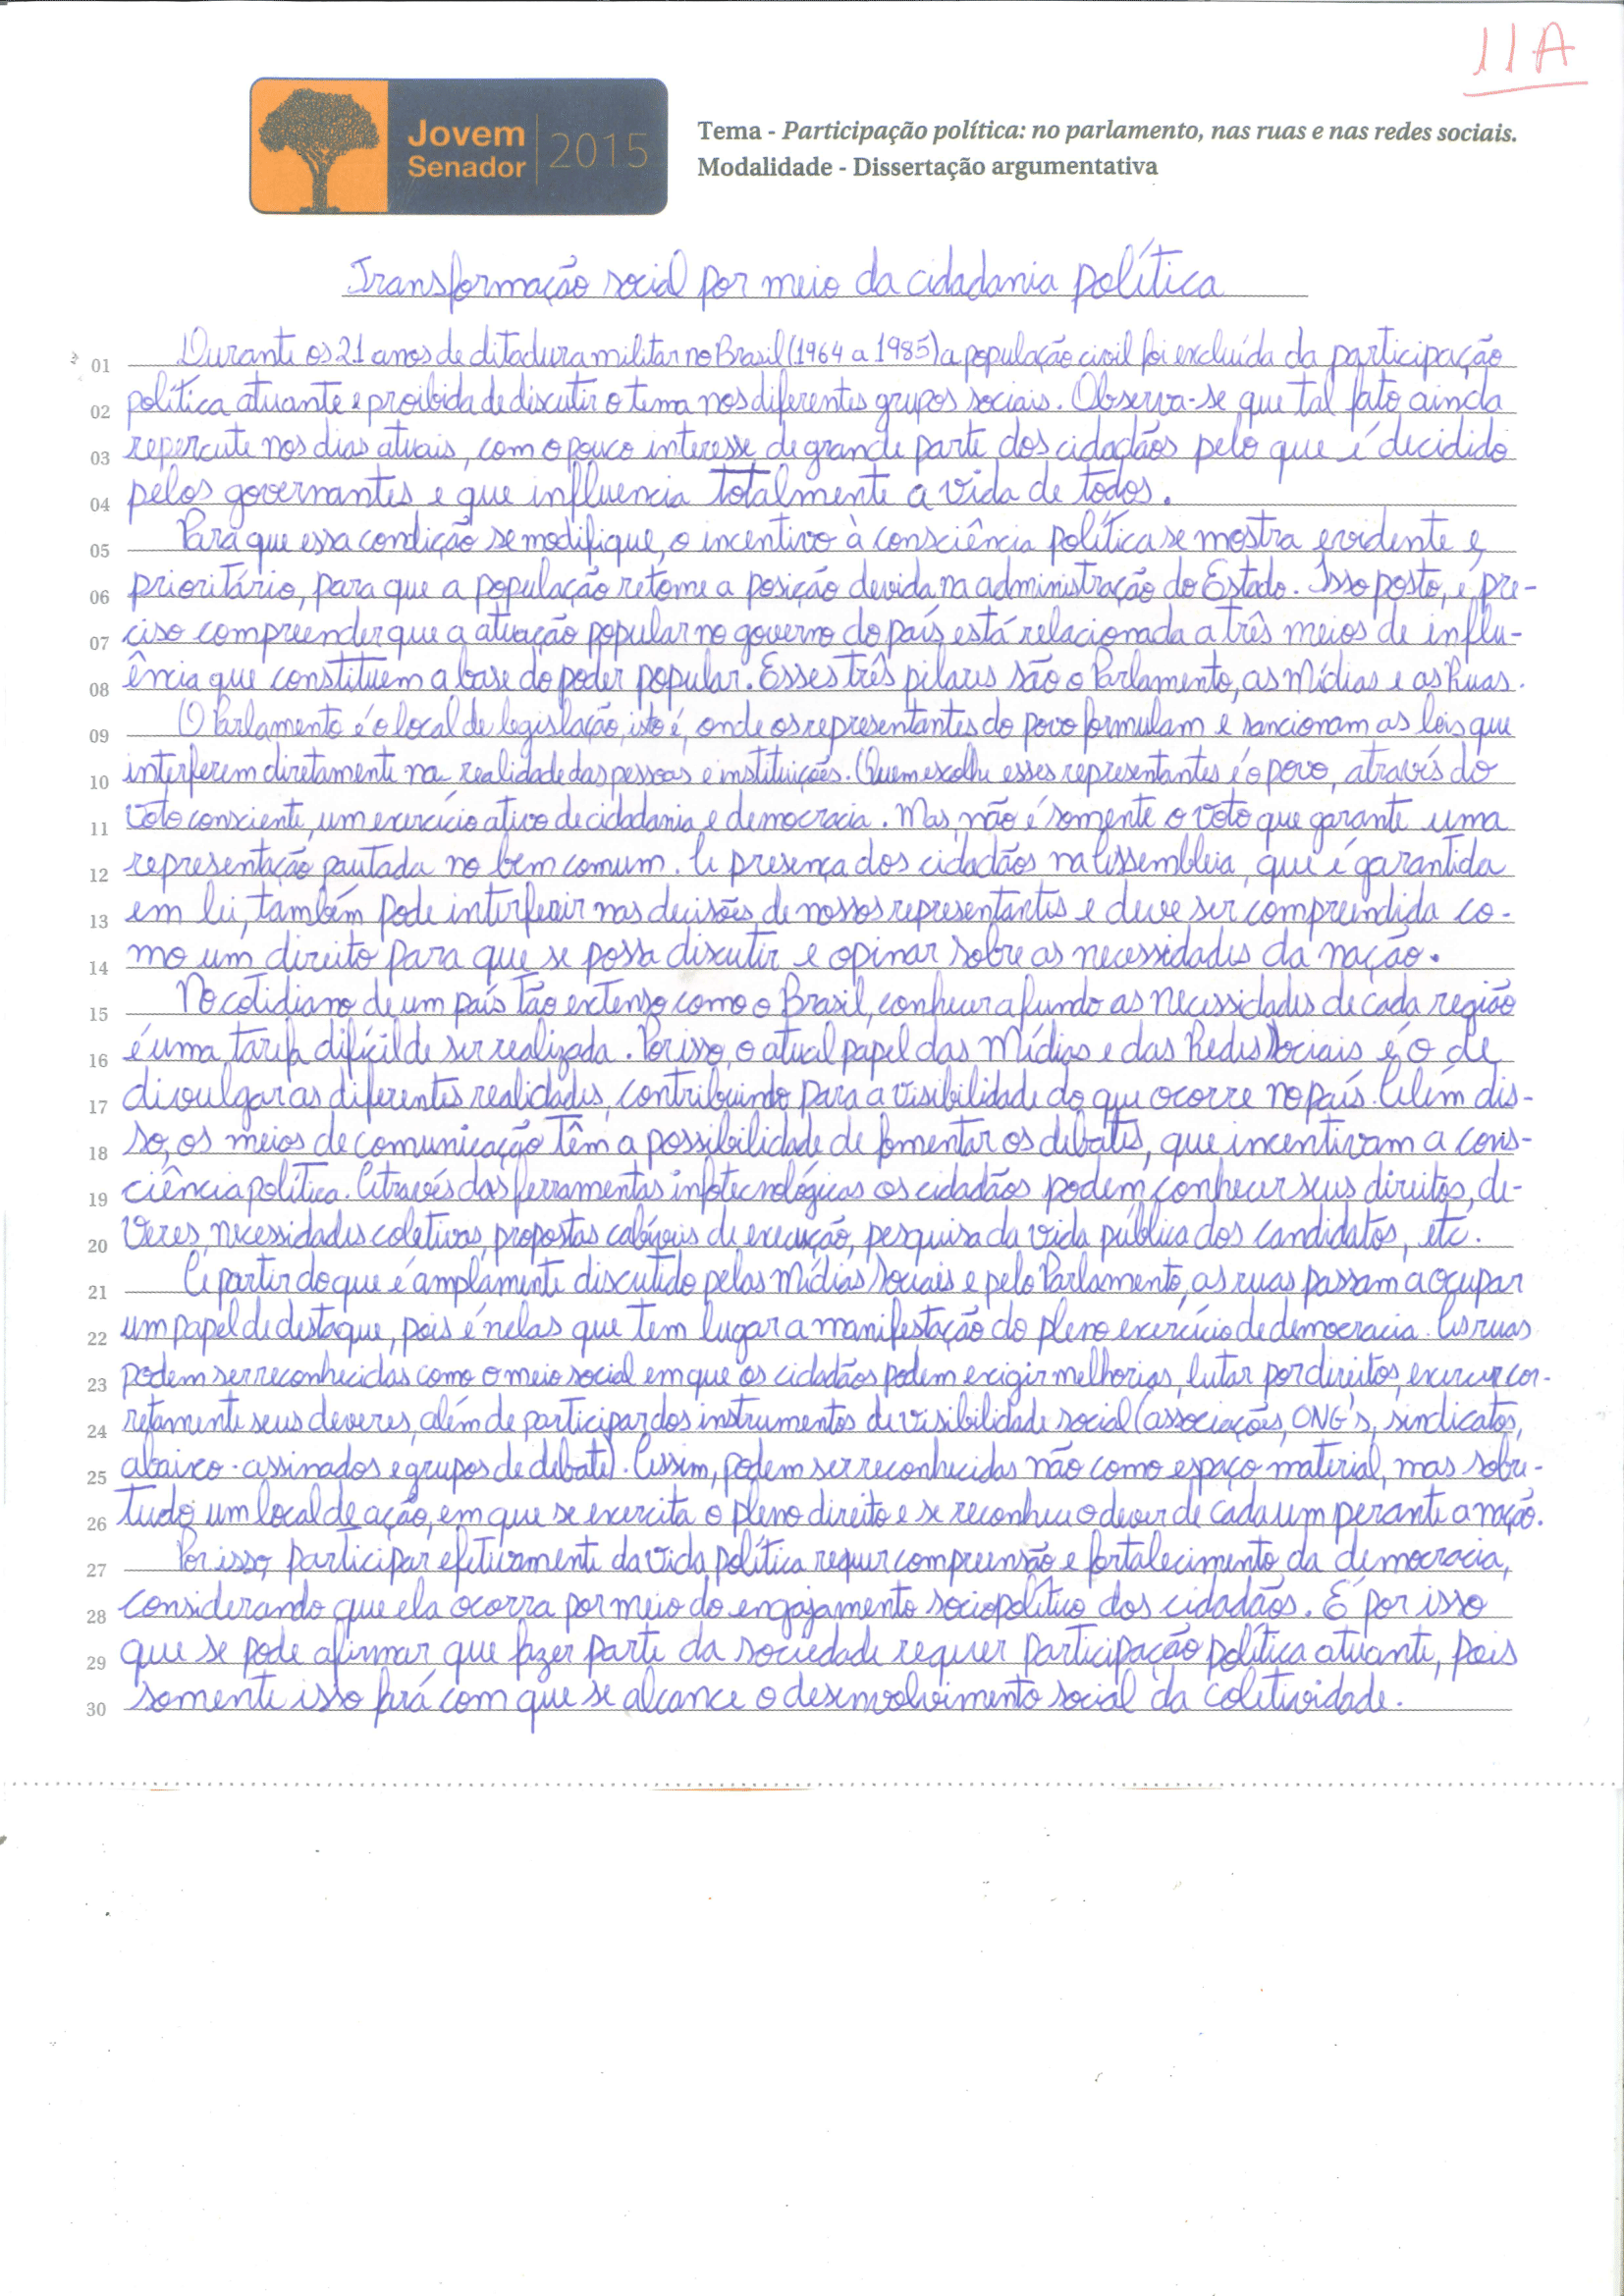 11A
Jovem
Senador
2015
Tema - Participação política: no parlamento, nas ruas e nas redes sociais.
Modalidade - Dissertação argumentativa
Transformação social por meio da cidadania política
01 Durante os 21 anos de ditadura militar no Brasil (1964 a 1985) a população civil foi excluída da participação
02 política atuante e proibida de discutir o tema nos diferentes grupos sociais. Observa-se que tal fato ainda
03 repercute nos dias atuais, com o pouco interesse de grande parte dos cidadãos pelo que é decidido
04 pelos governantes e que influencia totalmente a vida de todos.
05 Para que essa condição se modifique, o incentivo à consciência política se mostra evidente e
06 prioritário, para que a população retome a posição devida na administração do Estado. Isso posto, é pre-
07 ciso compreender que a atuação popular no governo do país está relacionada a três meios de influ-
08 ência que constituem a base do poder popular. Esses três pilares são o Parlamento, as Mídias e as Ruas.
09 O Parlamento é o local de legislação, isto é, onde os representantes do povo formulam e sancionam as leis que
10 interferem diretamente na realidade das pessoas e instituições. Quem escolhe esses representantes é o povo, através do
11 voto consciente, um exercício ativo de cidadania e democracia. Mas, não é somente o voto que garante uma
12 representação pautada no bem comum. A presença dos cidadãos na Assembleia, que é garantida
13 em lei, também pode interferir nas decisões de nossos representantes e deve ser compreendida co-
14 mo um direito para que se possa discutir e opinar sobre as necessidades da nação.
15 No cotidiano de um país tão extenso como o Brasil, conhecer a fundo as necessidades de cada região
16 é uma tarefa difícil de ser realizada. Por isso, o atual papel das Mídias e das Redes Sociais é o de
17 divulgar as diferentes realidades, contribuindo para a visibilidade do que ocorre no país. Além dis-
18 so, os meios de comunicação têm a possibilidade de fomentar os debates, que incentivam a cons-
19 ciência política. Através das ferramentas infotecnológicas os cidadãos podem conhecer seus direitos, de-
20 veres, necessidades coletivas, propostas cabíveis de execução, pesquisa da vida pública dos candidatos, etc.
21 A partir do que é amplamente discutido pelas Mídias Sociais e pelo Parlamento, as ruas passam a ocupar
22 um papel de destaque, pois é nelas que tem lugar a manifestação do pleno exercício de democracia. As ruas
23 podem ser reconhecidas como o meio social em que os cidadãos podem exigir melhorias, lutar por direitos, exercer cor-
24 retamente seus deveres, além de participar dos instrumentos de visibilidade social (associações, ONG's, sindicatos,
25 abaixo-assinados e grupos de debate). Assim, podem ser reconhecidas não como espaço material, mas sobre-
26 tudo um local de ação, em que se exercita o pleno direito e se reconhece o dever de cada um perante a nação.
27 Por isso, participar efetivamente da vida política requer compreensão e fortalecimento da democracia,
28 considerando que ela ocorra por meio do engajamento sociopolítico dos cidadãos. É por isso
29 que se pode afirmar que fazer parte da sociedade requer participação política atuante, pois
30 somente isso fará com que se alcance o desenvolvimento social da coletividade.